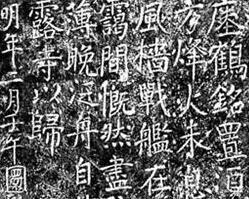 瘞鶴銘置酒
方烽火未息
風檣戰艦在
靄間慨然盡
薄晚泛舟自
露寺以歸
明年二月壬午圜